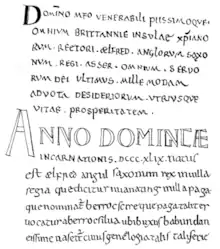 Domino meo venerabili piissimoque
omnium brittannie insulae xpiano
rum. rectori. ælfred. anglorum saxo
num. regi. asser. omnium. servo
rum dei ultimus. mille modam
ad vota desideriorum. utriusque
vitae. prosperitatem.
ANNO DOMINICÆ
incarnationis. dccc.xlix. natus
est ælfred angul saxonum rex in villa
regia quae dicitur uuanating in illa paga
quae nominatur berrocscire quae paga taliter
vocatur a berroc silva ubi buxus habundan
tissime nascitur cuius genealogia tali serie